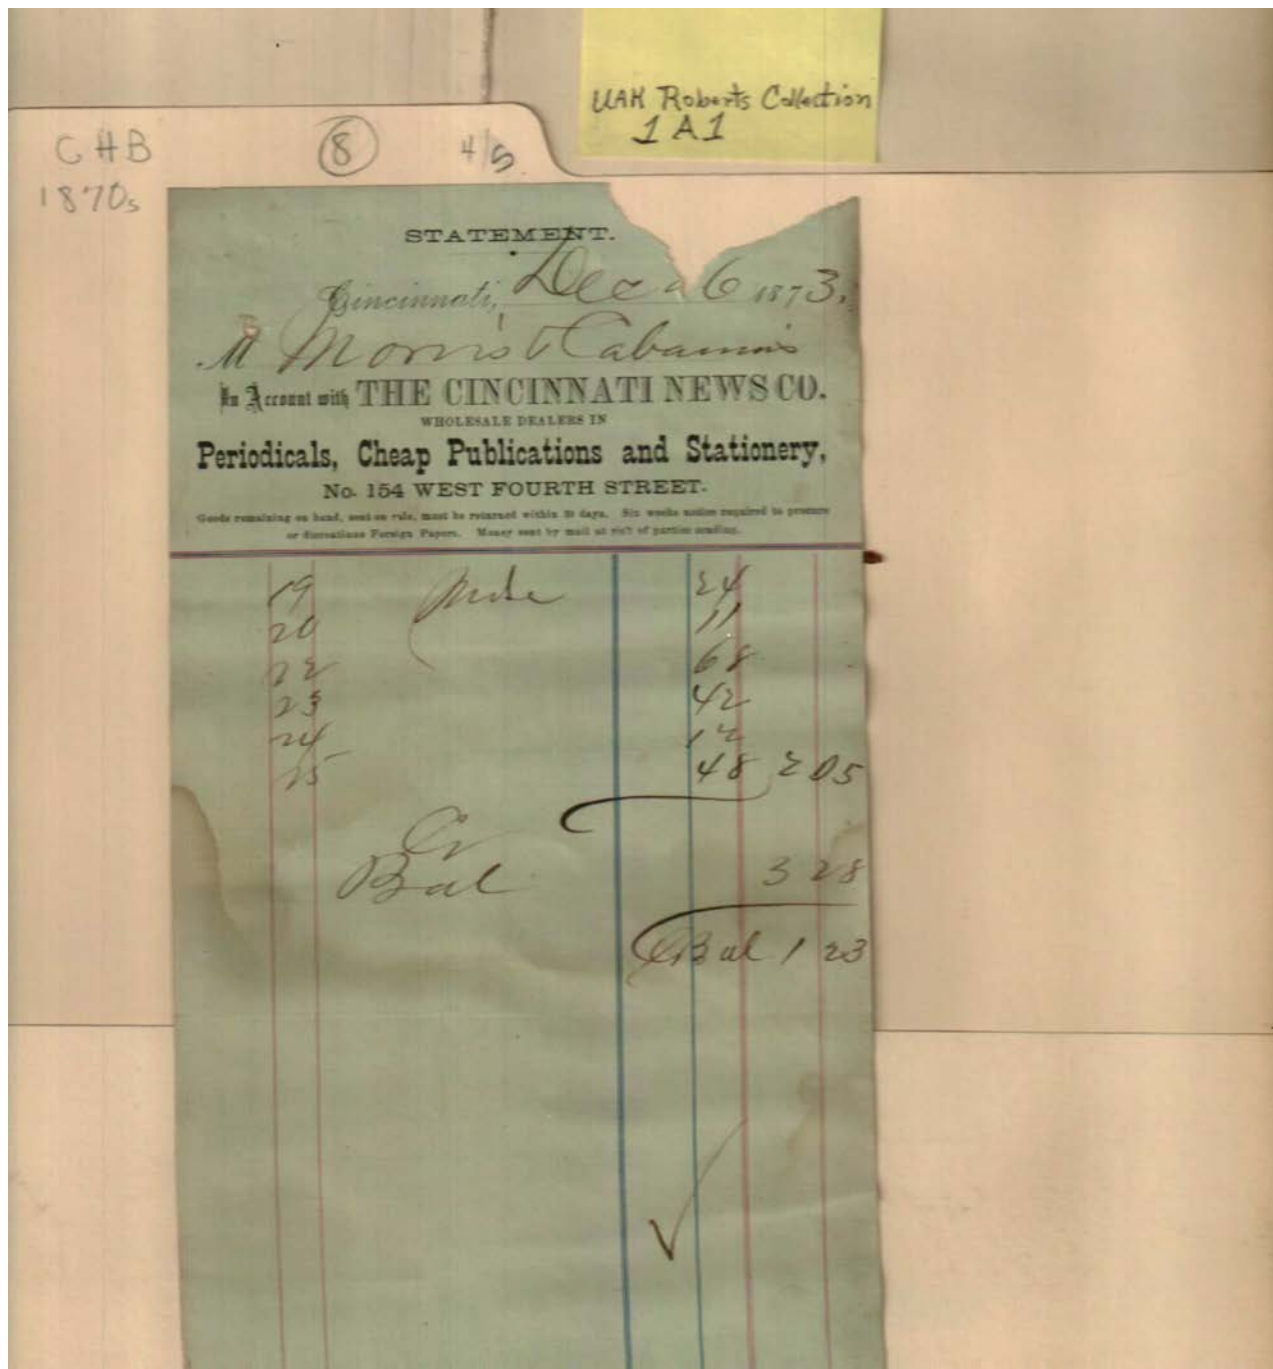 UAH Roberts Collection
1A1
CHB
8
4/5
1870s
STATEMENT.
Cincinnati, Dec 26 1873.
M Morris & Cabaniss
In Account with THE CINCINNATI NEWS CO.
WHOLESALE DEALERS IN
Periodicals, Cheap Publications and Stationery,
No. 154 WEST FOURTH STREET.
Goods remaining on hand, sent on sale, must be returned within 30 days. Six weeks notice required to procure
or discontinue Foreign Papers. Money sent by mail at risk of parties sending.
19 Mdse 24
20 11
22 68
23 42
24 12
25 48 2 05
Cr
Bal 3 28
Bal 1 23